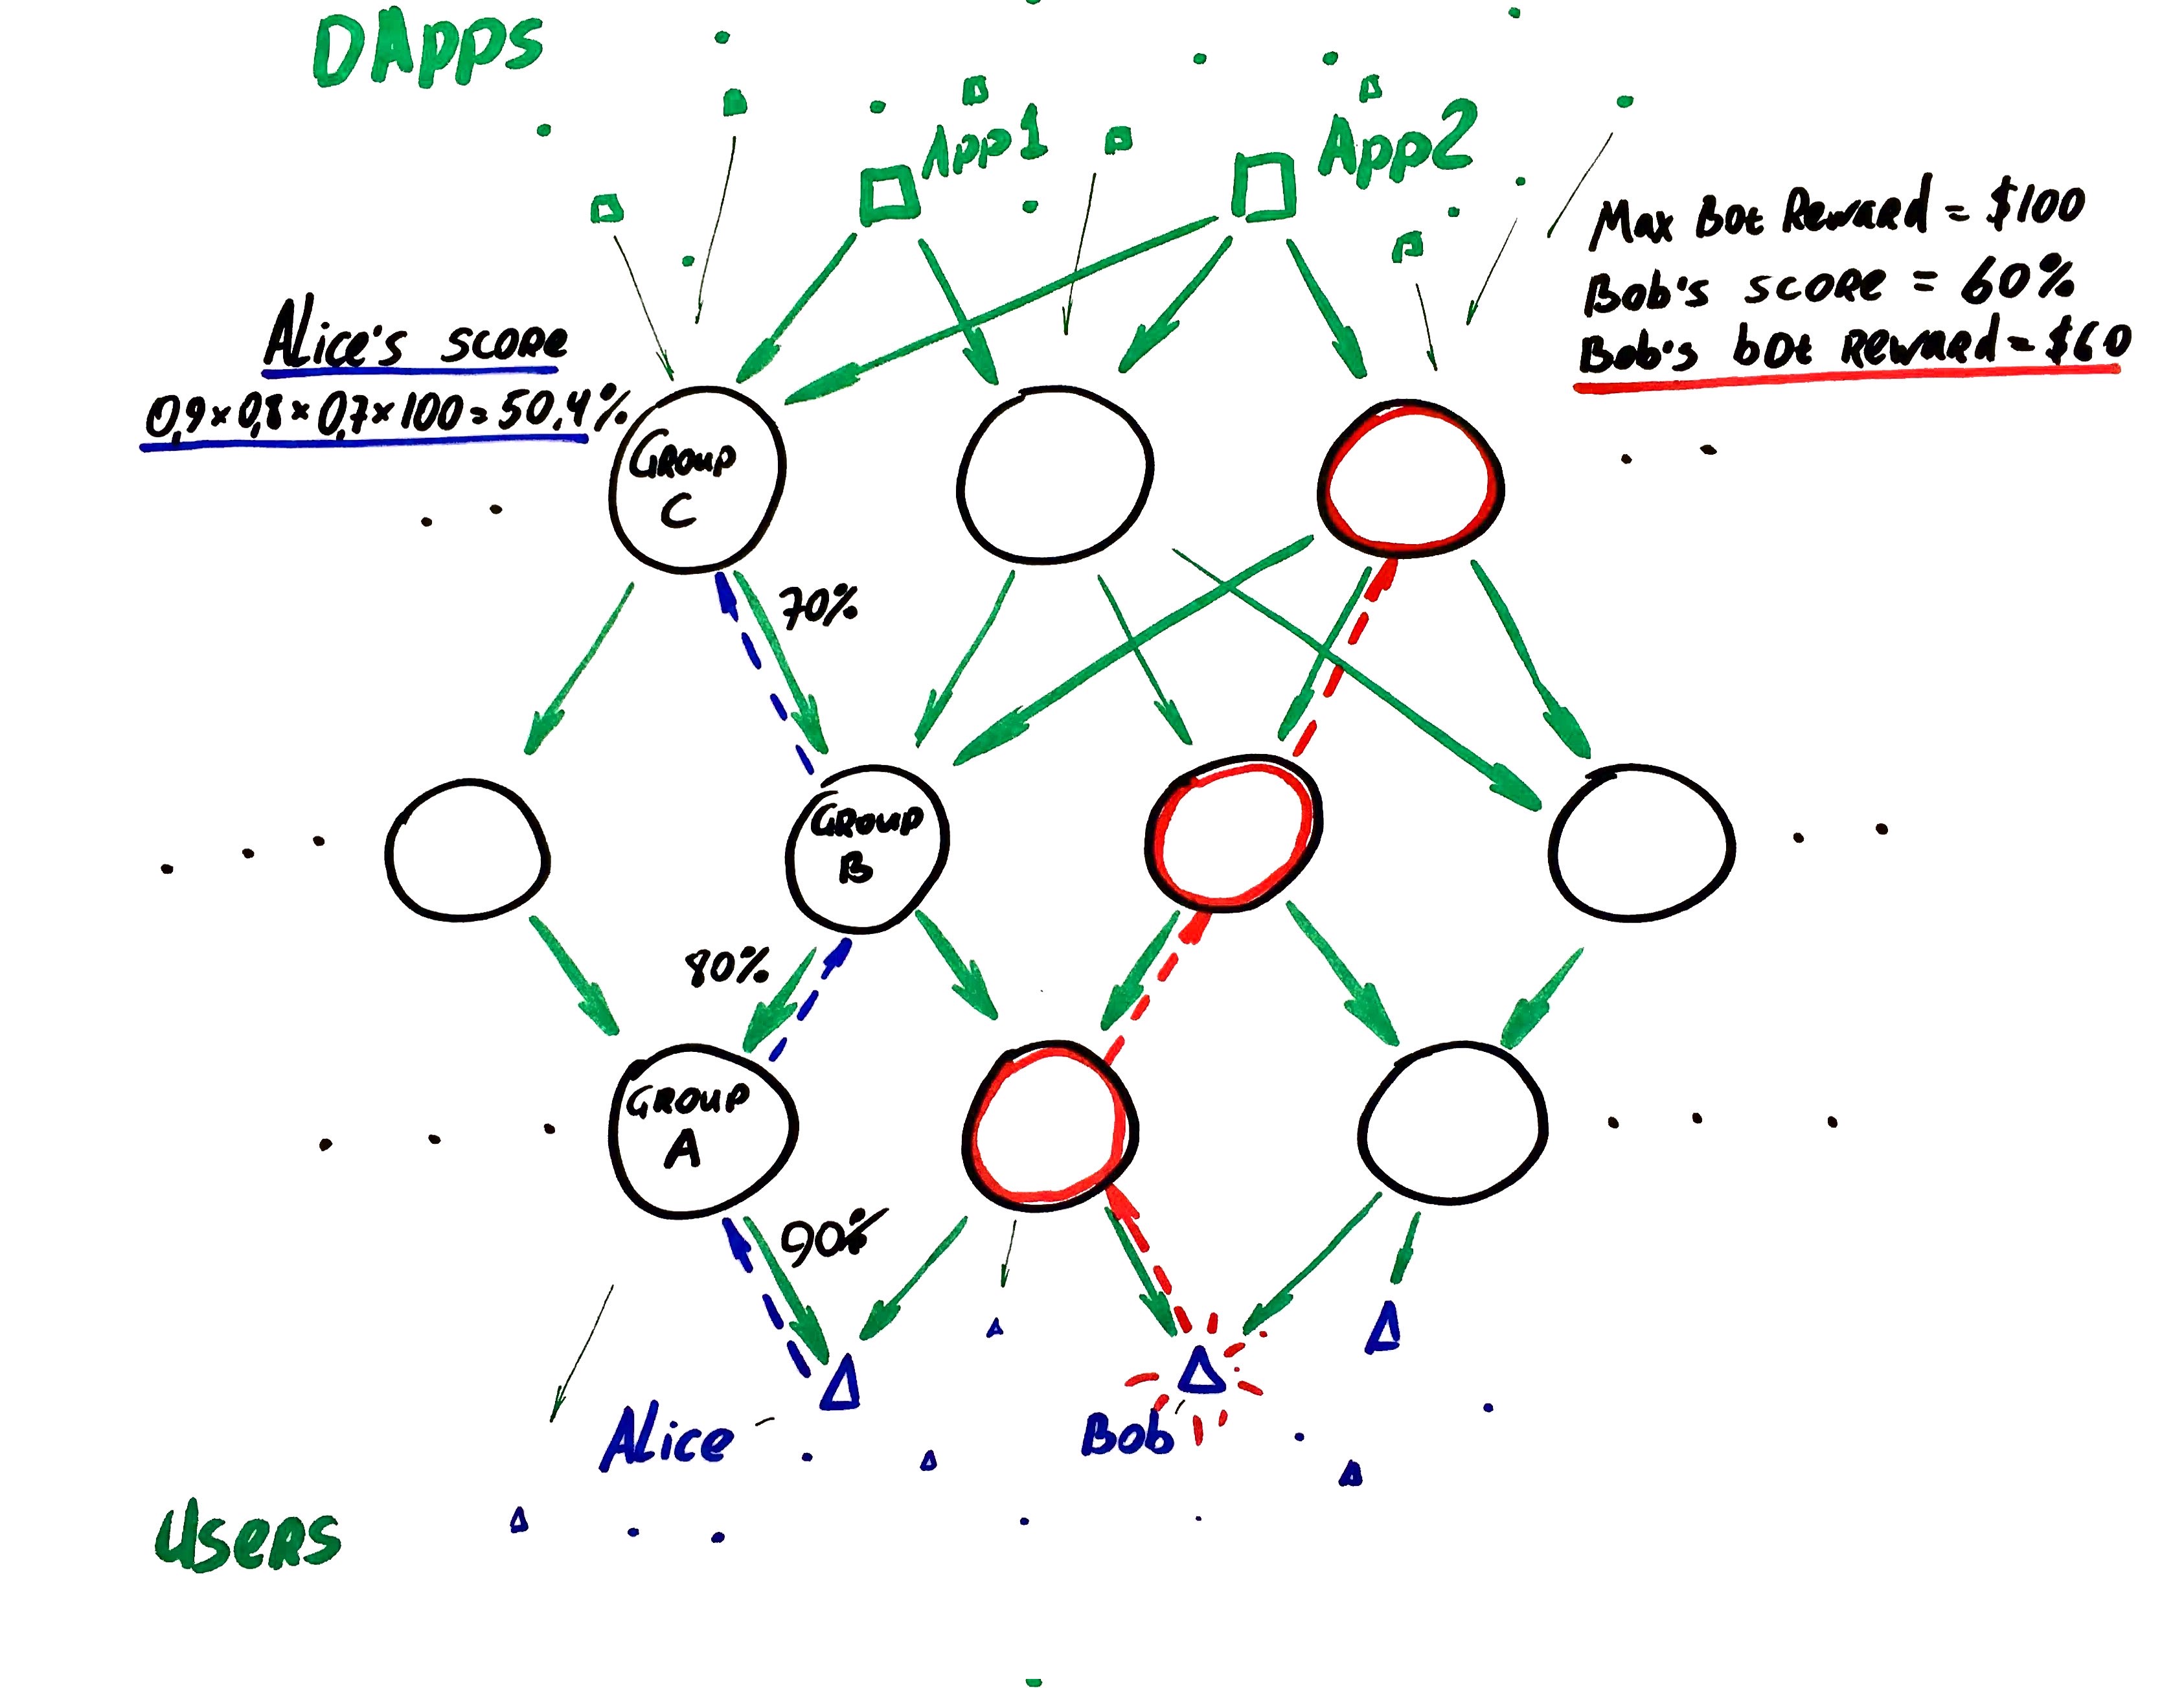 DApps
App1
App2
Max Bot Reward = $100
Bob's score = 60%
Bob's bot Reward = $60
Alice's score
0,9 × 0,8 × 0,7 × 100 = 50,4%
Group
C
70%
Group
B
80%
Group
A
90%
Alice
Bob
Users